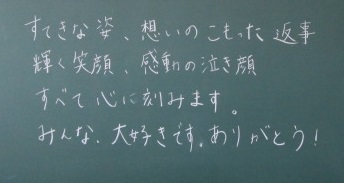 すてきな姿、想いのこもった返事
輝く笑顔、感動の泣き顔
すべて心に刻みます。
みんな、大好きです。ありがとう!